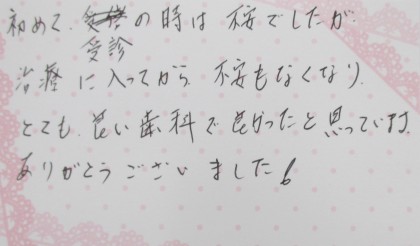 初めて、受診の時は不安でしたが、
治療に入ってから不安もなくなり、
とても、良い歯科で良かったと思っています。
ありがとうございました。